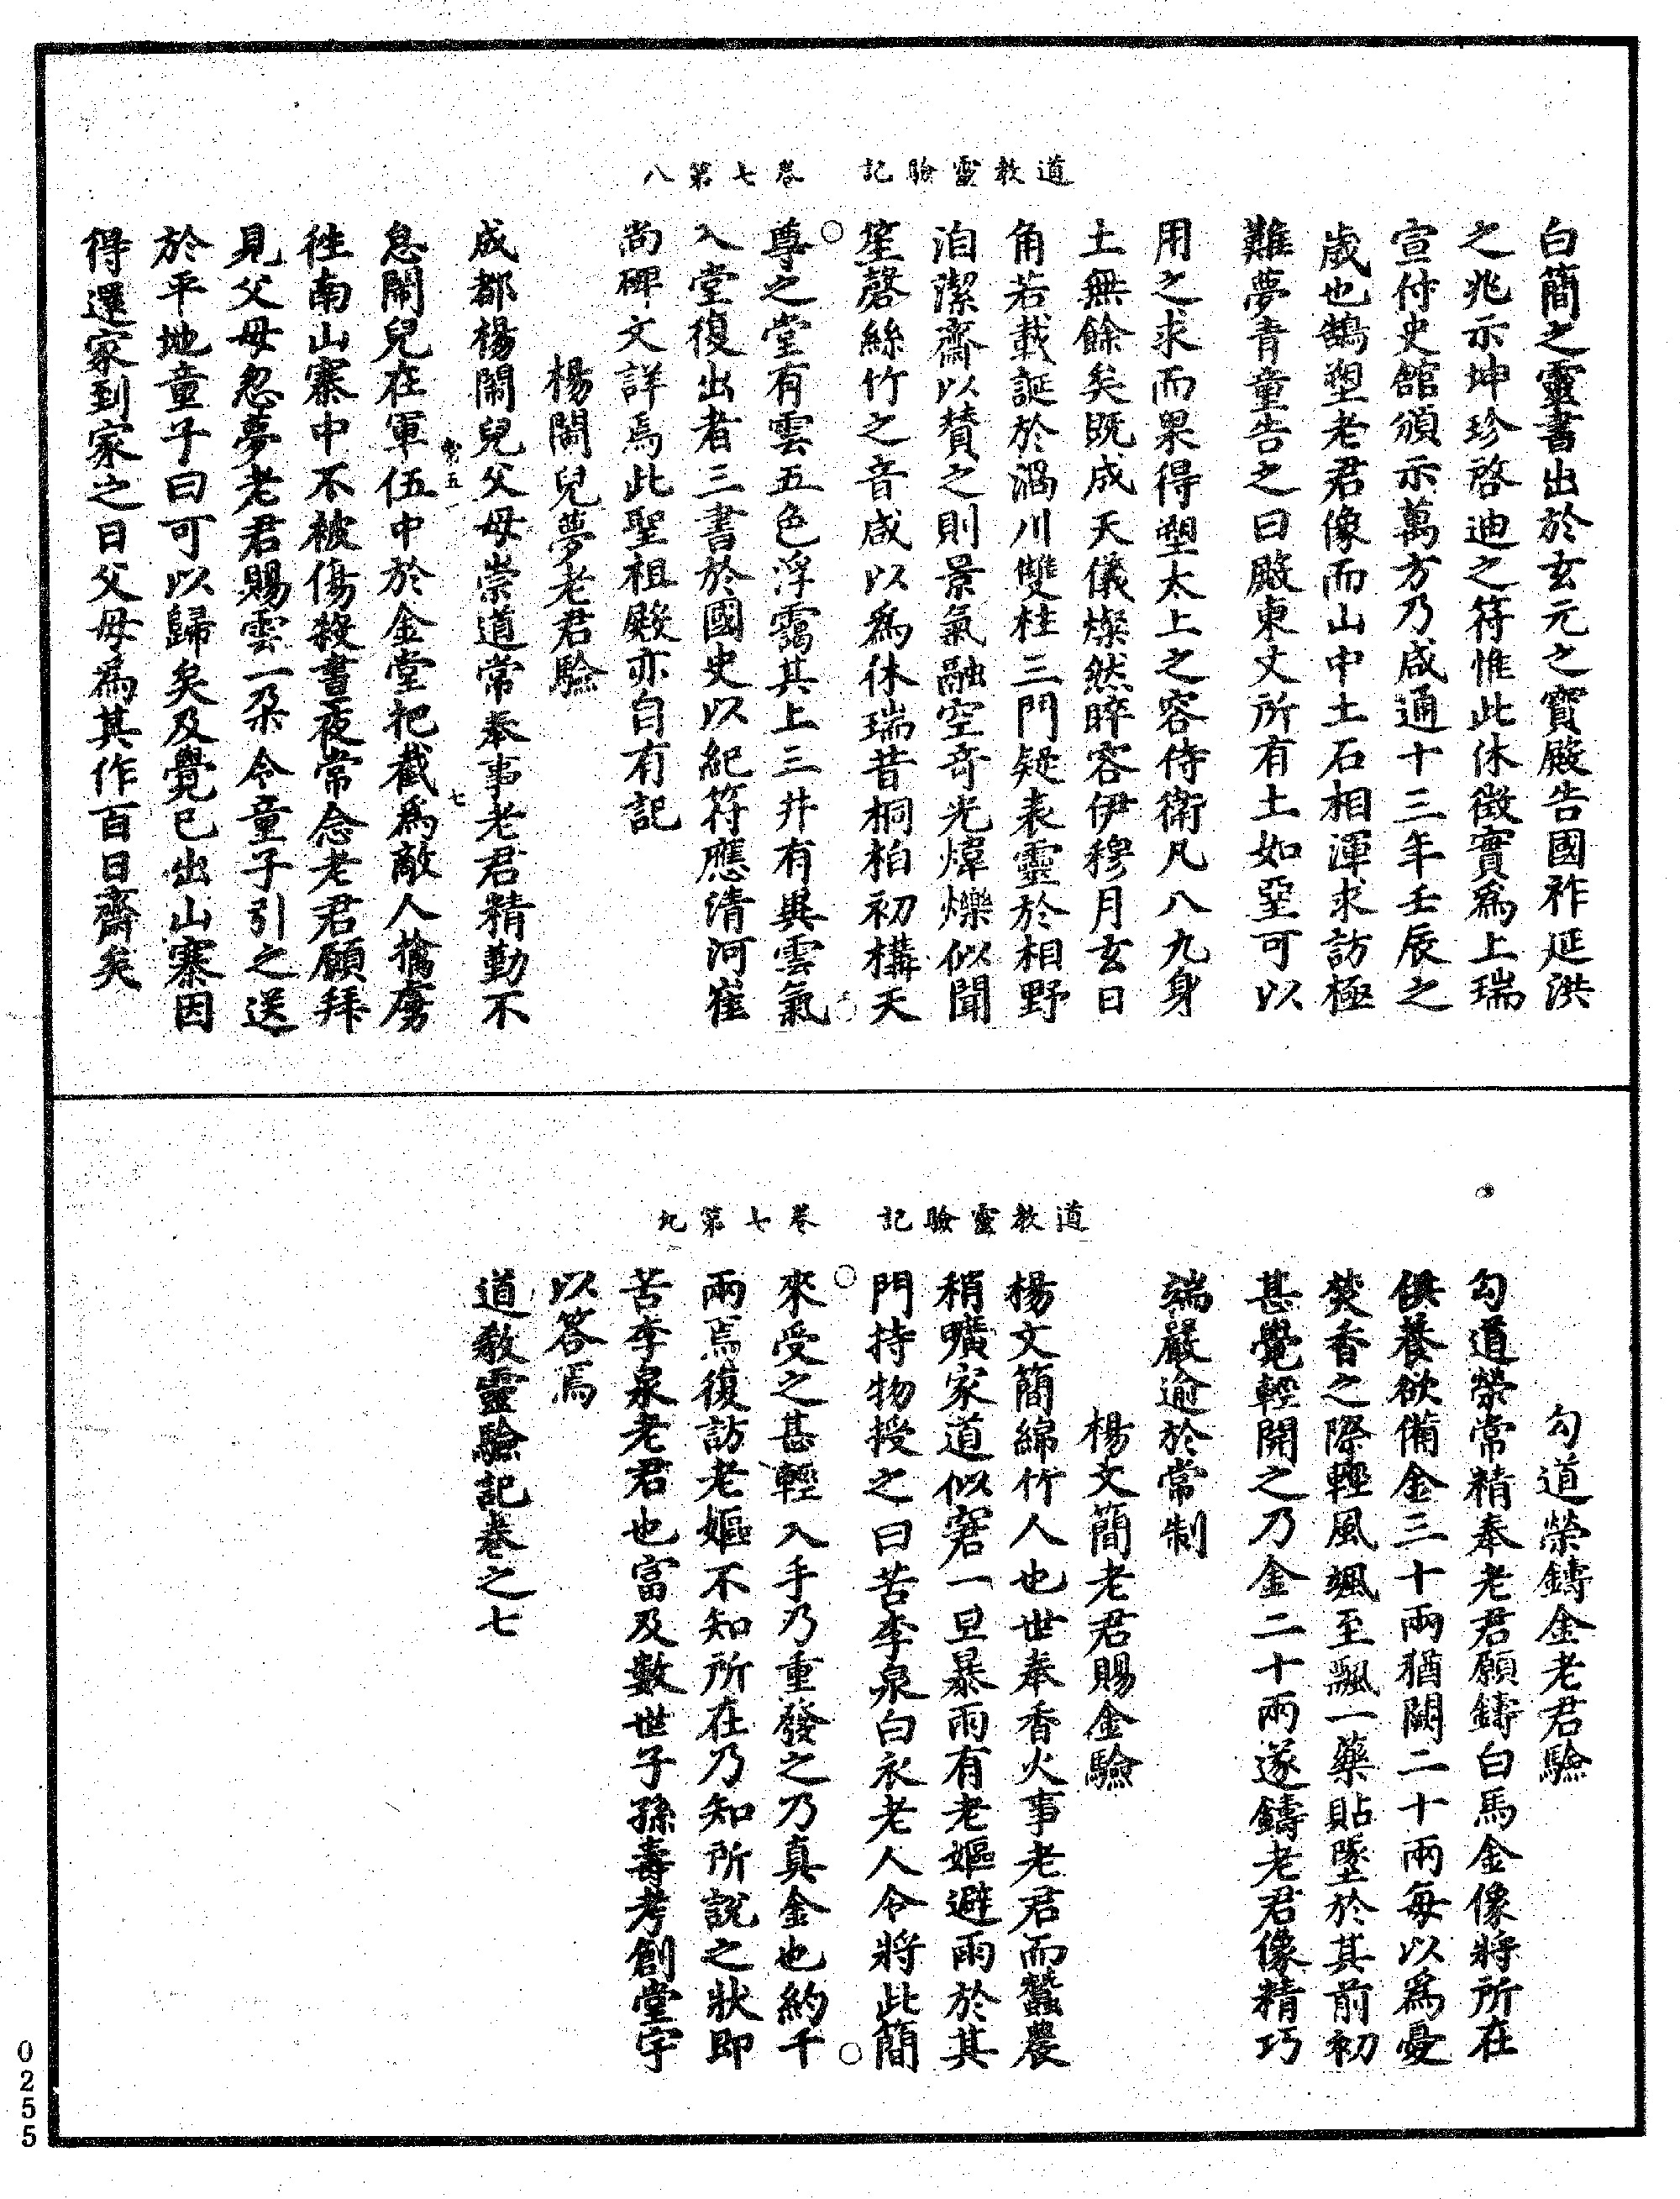 道教靈驗記　卷七第八
白簡之靈書出於玄元之寶殿告國祚延洪
之兆示坤珍啓迪之符惟此休徵實爲上瑞
宣付史館頒示萬方乃咸通十三年壬辰之
歲也鵠塑老君像而山中土石相渾求訪極
難夢青童告之曰殿東丈所有土如堊可以
用之求而果得塑太上之容侍衛凡八九身
土無餘矣既成天儀燦然睟容伊穆月玄日
角若載誕於渦川雙柱三門疑表靈於相野
洎潔齋以贊之則景氣融空奇光煒爍似聞
笙磬絲竹之音咸以爲休瑞昔桐柏初構天
尊之堂有雲五色浮靄其上三井有異雲氣
入堂復出者三書於國史以紀符應清河崔
尚碑文詳焉此聖祖殿亦自有記
楊鬧兒夢老君驗
成都楊鬧兒父母崇道常奉事老君精勤不
怠鬧兒在軍伍中於金堂祀截爲敵人擒虜
徃南山寨中不被傷殺晝夜常念老君願拜
見父母忽夢老君賜雲一朶令童子引之送
於平地童子曰可以歸矣及覺已出山寨因
得還家到家之日父母爲其作百日齋矣
五
七
道教靈驗記　卷七第九
勾道榮鑄金老君驗
勾道榮常精奉老君願鑄白馬金像將所在
供養欲備金三十兩猶闕二十兩每以爲憂
焚香之際輕風颯至飄一藥貼墜於其前初
甚覺輕開之乃金二十兩遂鑄老君像精巧
端嚴逾於常制
楊文簡老君賜金驗
楊文簡綿竹人也世奉香火事老君而蠶農
稍曠家道似窘一旦暴雨有老嫗避雨於其
門持物授之曰苦李泉白衣老人令將此簡
來受之甚輕入手乃重發之乃真金也約千
兩焉復訪老嫗不知所在乃知所說之狀即
苦李泉老君也富及數世子孫壽考創堂宇
以答焉
道教靈驗記卷之七
0255